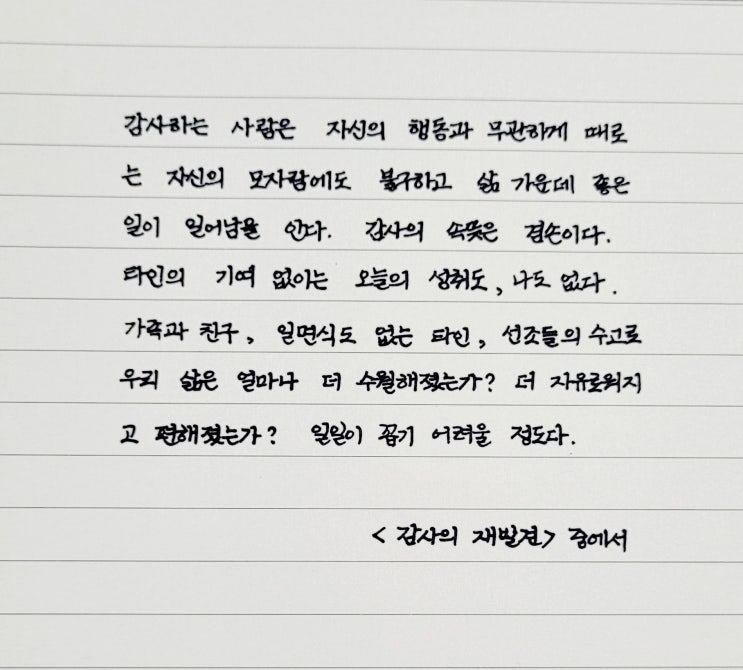 감사하는 사람은 자신의 행동과 무관하게 때로
는 자신의 모자람에도 불구하고 삶 가운데 좋은
일이 일어남을 안다. 감사의 속뜻은 겸손이다.
타인의 기여 없이는 오늘의 성취도, 나도 없다.
가족과 친구, 일면식도 없는 타인, 선조들의 수고로
우리 삶은 얼마나 더 수월해졌는가? 더 자유로워지
고 편해졌는가? 일일이 꼽기 어려울 정도다.
<감사의 재발견> 중에서